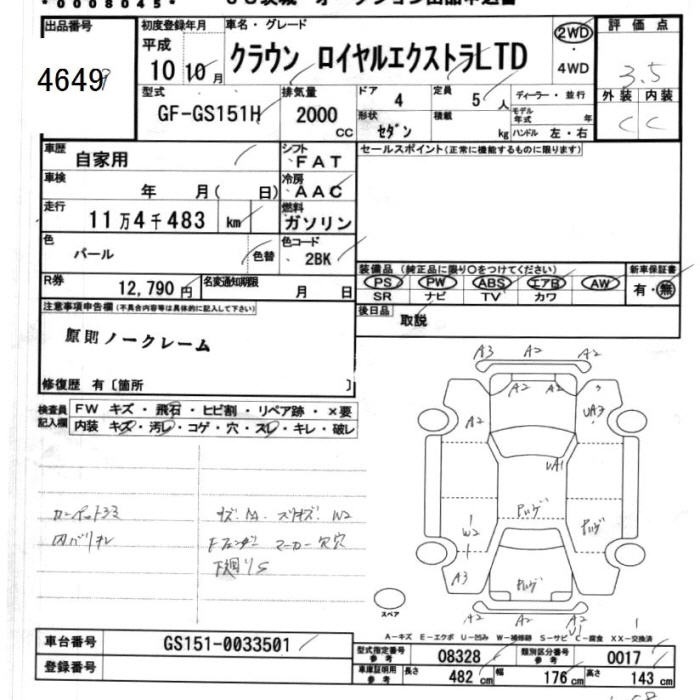 0008045
出品番号 初度登録年月 車名・グレード 2WD 評価点
4649 平成 10 10月 クラウン ロイヤルエクストラLTD ・ 4WD 3.5
型式 排気量 ドア 定員 ディーラー・並行 外装 内装
GF-GS151H 2000 CC 4 5人 モデル年式 年 C C
形状 セダン 積載 kg ハンドル 左・右
車歴 自家用 シフト FAT セールスポイント(正常に機能するものに限ります)
車検 年 月( 日) 冷房 AAC
走行 11万4千483 km 燃料 ガソリン
色 パール 色替 色コード 2BK
R券 12,790円 名変通知期限 月 日
装備品(純正品に限り○をつけてください) 新車保証書
PS PW ABS エアB AW 有・無
SR ナビ TV カワ
注意事項申告欄(不具合内容等は具体的に記入して下さい) 後日品 取説
原則ノークレーム
修復歴 有〔箇所 〕
検査員記入欄 FW キズ・飛石・ヒビ割・リペア跡・×要
内装 キズ・汚レ・コゲ・穴・スレ・キレ・破レ
A3 A2 A2
A2 A2
A2 UA3
UA1
W2
A3
A2 A2
U1
スペア
A-キズ E-エクボ U-凹み W-補修跡 S-サビ C-腐食 XX-交換済
車台番号 GS151-0033501
登録番号
型式指定番号 参考 08328 類別区分番号 参考 0017
車庫証明用 参考 長さ 482cm 幅 176cm 高さ 143cm